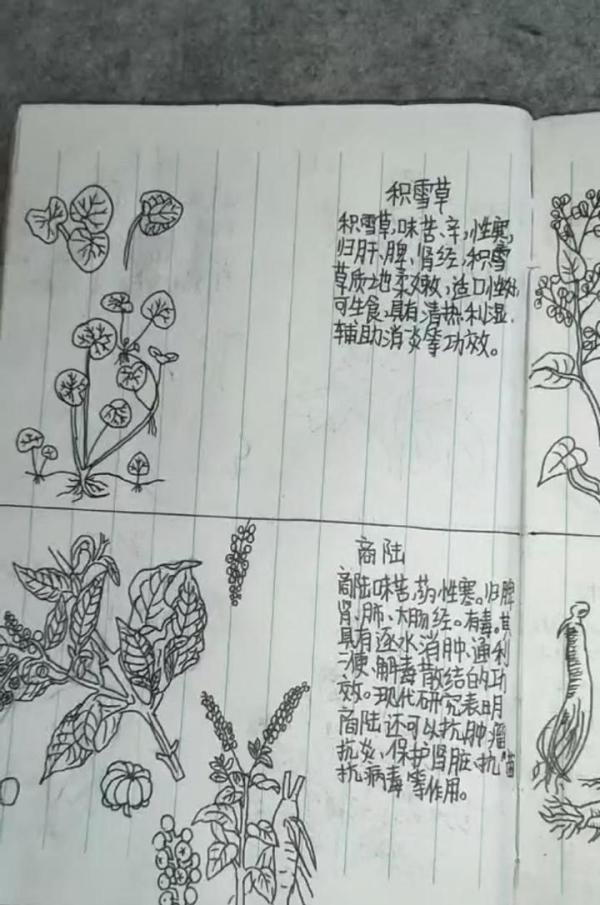 积雪草
积雪草,味苦、辛,性寒,
归肝、脾、肾经,积雪
草质地柔嫩,适口性好,
可生食,具有清热利湿、
辅助消炎等功效。
商陆
商陆味苦,性寒。归脾
肾、肺、大肠经。有毒。其
具有逐水消肿、通利
二便、解毒散结的功
效。现代研究表明
商陆还可以抗肿瘤
抗炎、保护肾脏、抗菌
抗病毒等作用。